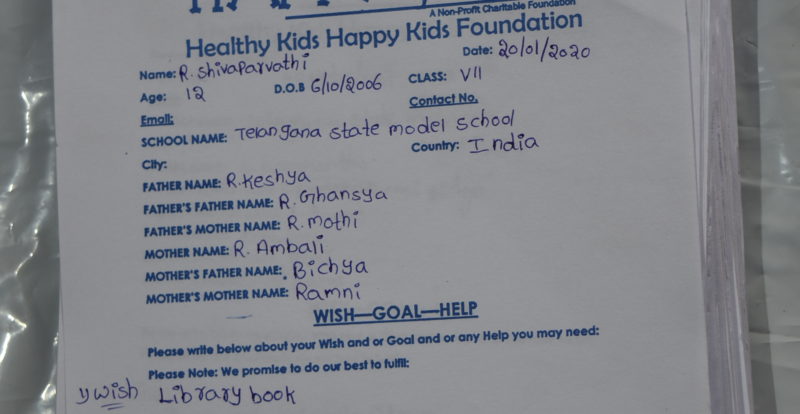 A Non-Profit Charitable Foundation
Healthy Kids Happy Kids Foundation
Date: 20/01/2020
Name: R. Shivaparvathi
Age: 12 D.O.B 6/10/2006 CLASS: VII
Email: Contact No.
SCHOOL NAME: Telangana state model school
City: Country: India
FATHER NAME: R.Keshya
FATHER'S FATHER NAME: R. Ghansya
FATHER'S MOTHER NAME: R. mothi
MOTHER NAME: R. Ambali
MOTHER'S FATHER NAME: Bichya
MOTHER'S MOTHER NAME: Ramni
WISH—GOAL—HELP
Please write below about your Wish and or Goal and or any Help you may need:
Please Note: We promise to do our best to fulfil:
1) wish Library book